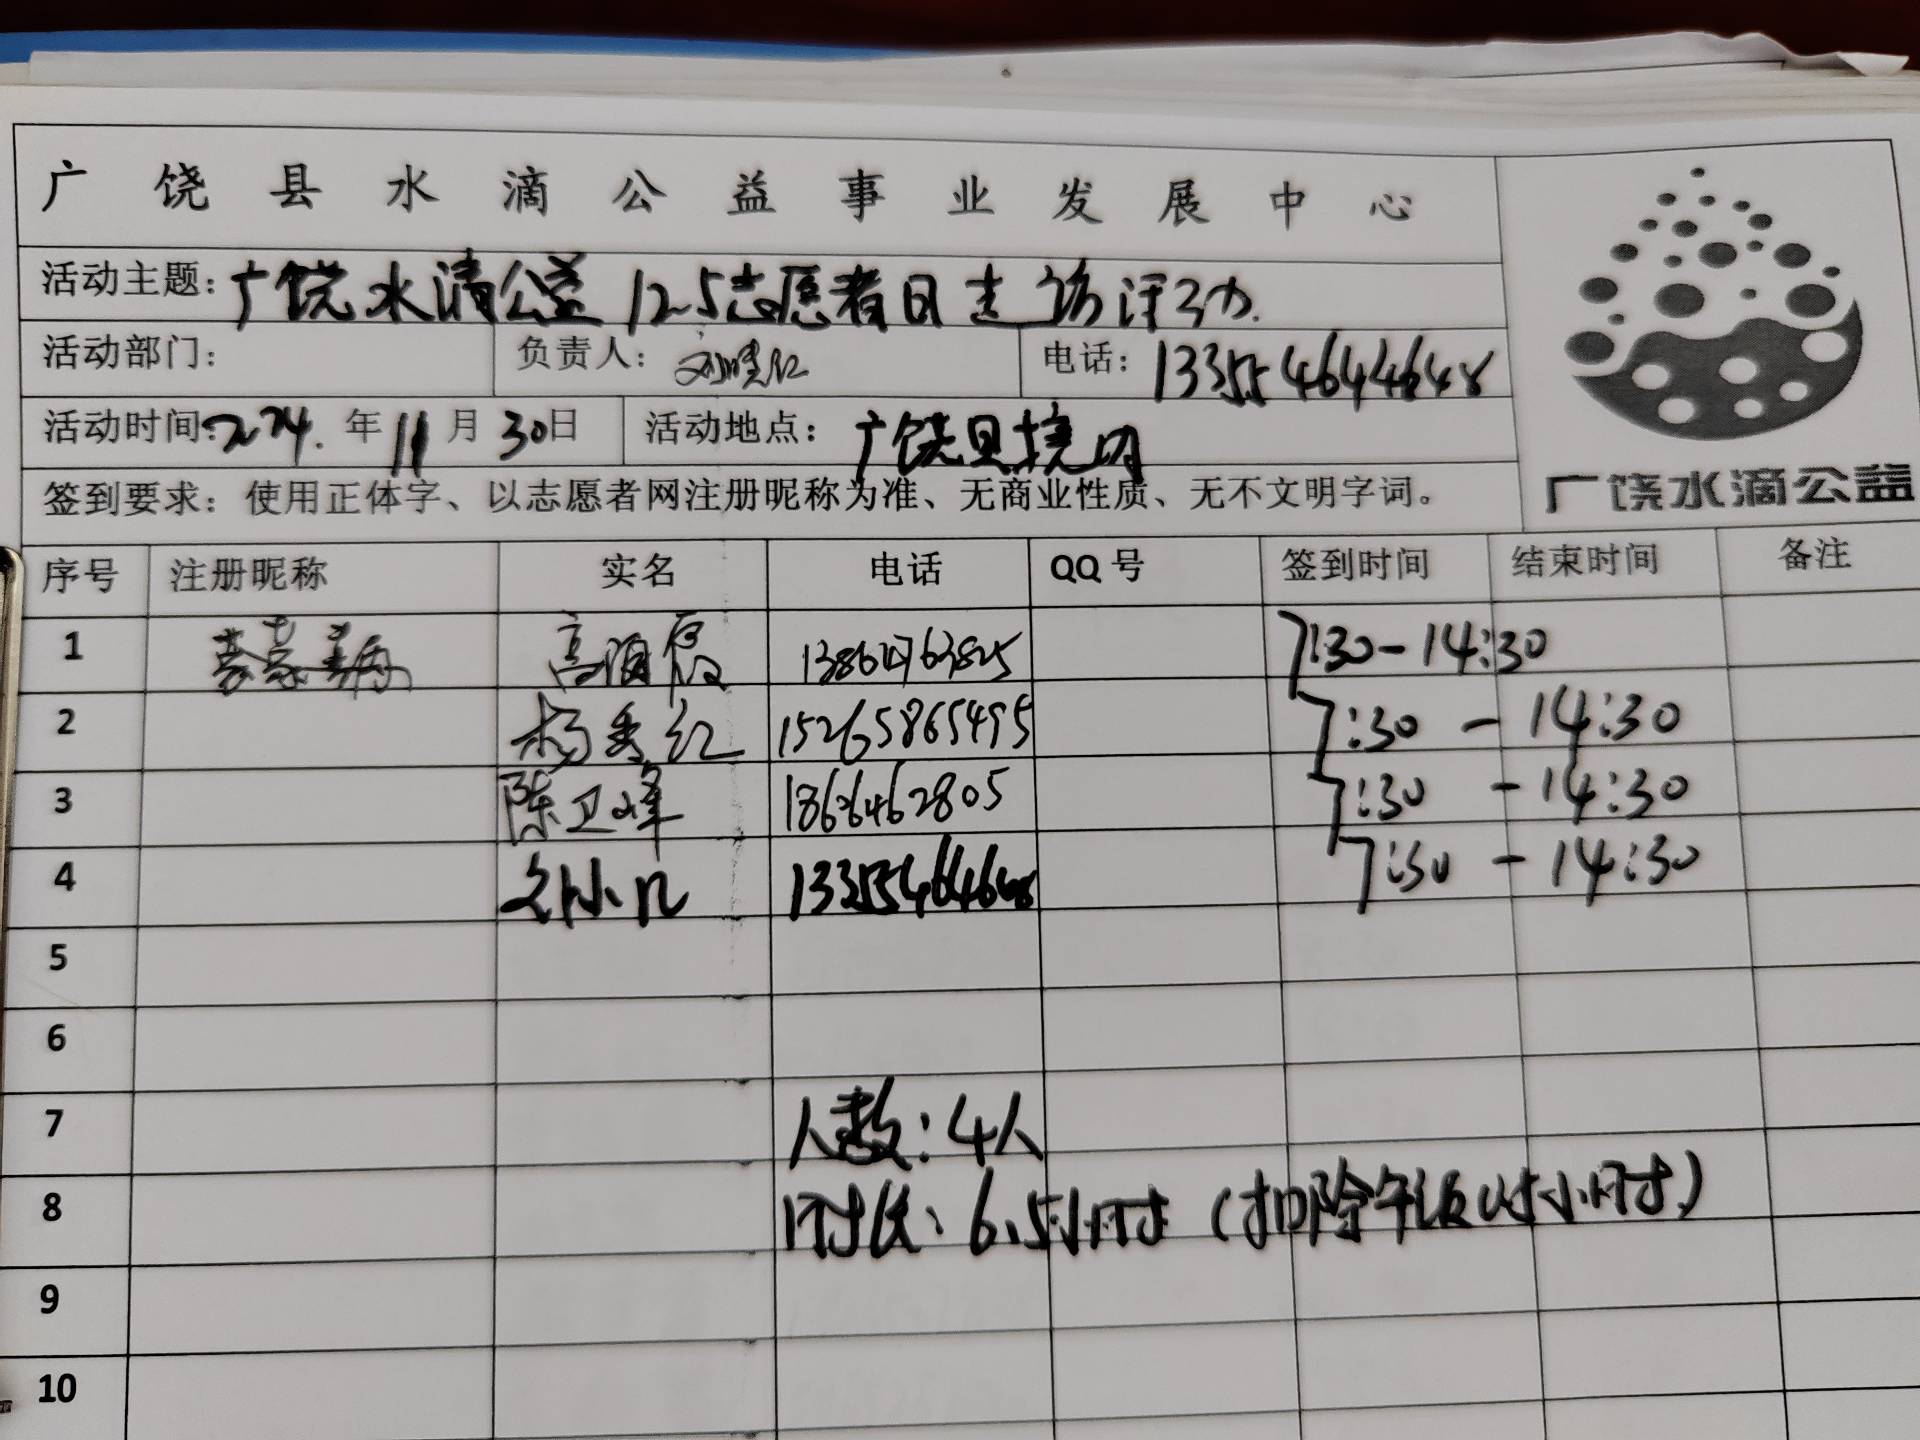 广饶县水滴公益事业发展中心
活动主题：广饶水滴公益12.5志愿者日走访活动.
活动部门： 负责人： 电话：13355464648
活动时间： 年 11 月 30 日 活动地点：广饶县境内
签到要求：使用正体字、以志愿者网注册昵称为准、无商业性质、无不文明字词。
广饶水滴公益
序号 注册昵称 实名 电话 QQ号 签到时间 结束时间 备注
1 7:30-14:30
2 杨秀红 15265865495 7:30 - 14:30
3 陈卫峰 7:30 - 14:30
4 7:30 - 14:30
5
6
7 人数：4人
8 时长：6.5小时（扣除午饭 小时）
9
10